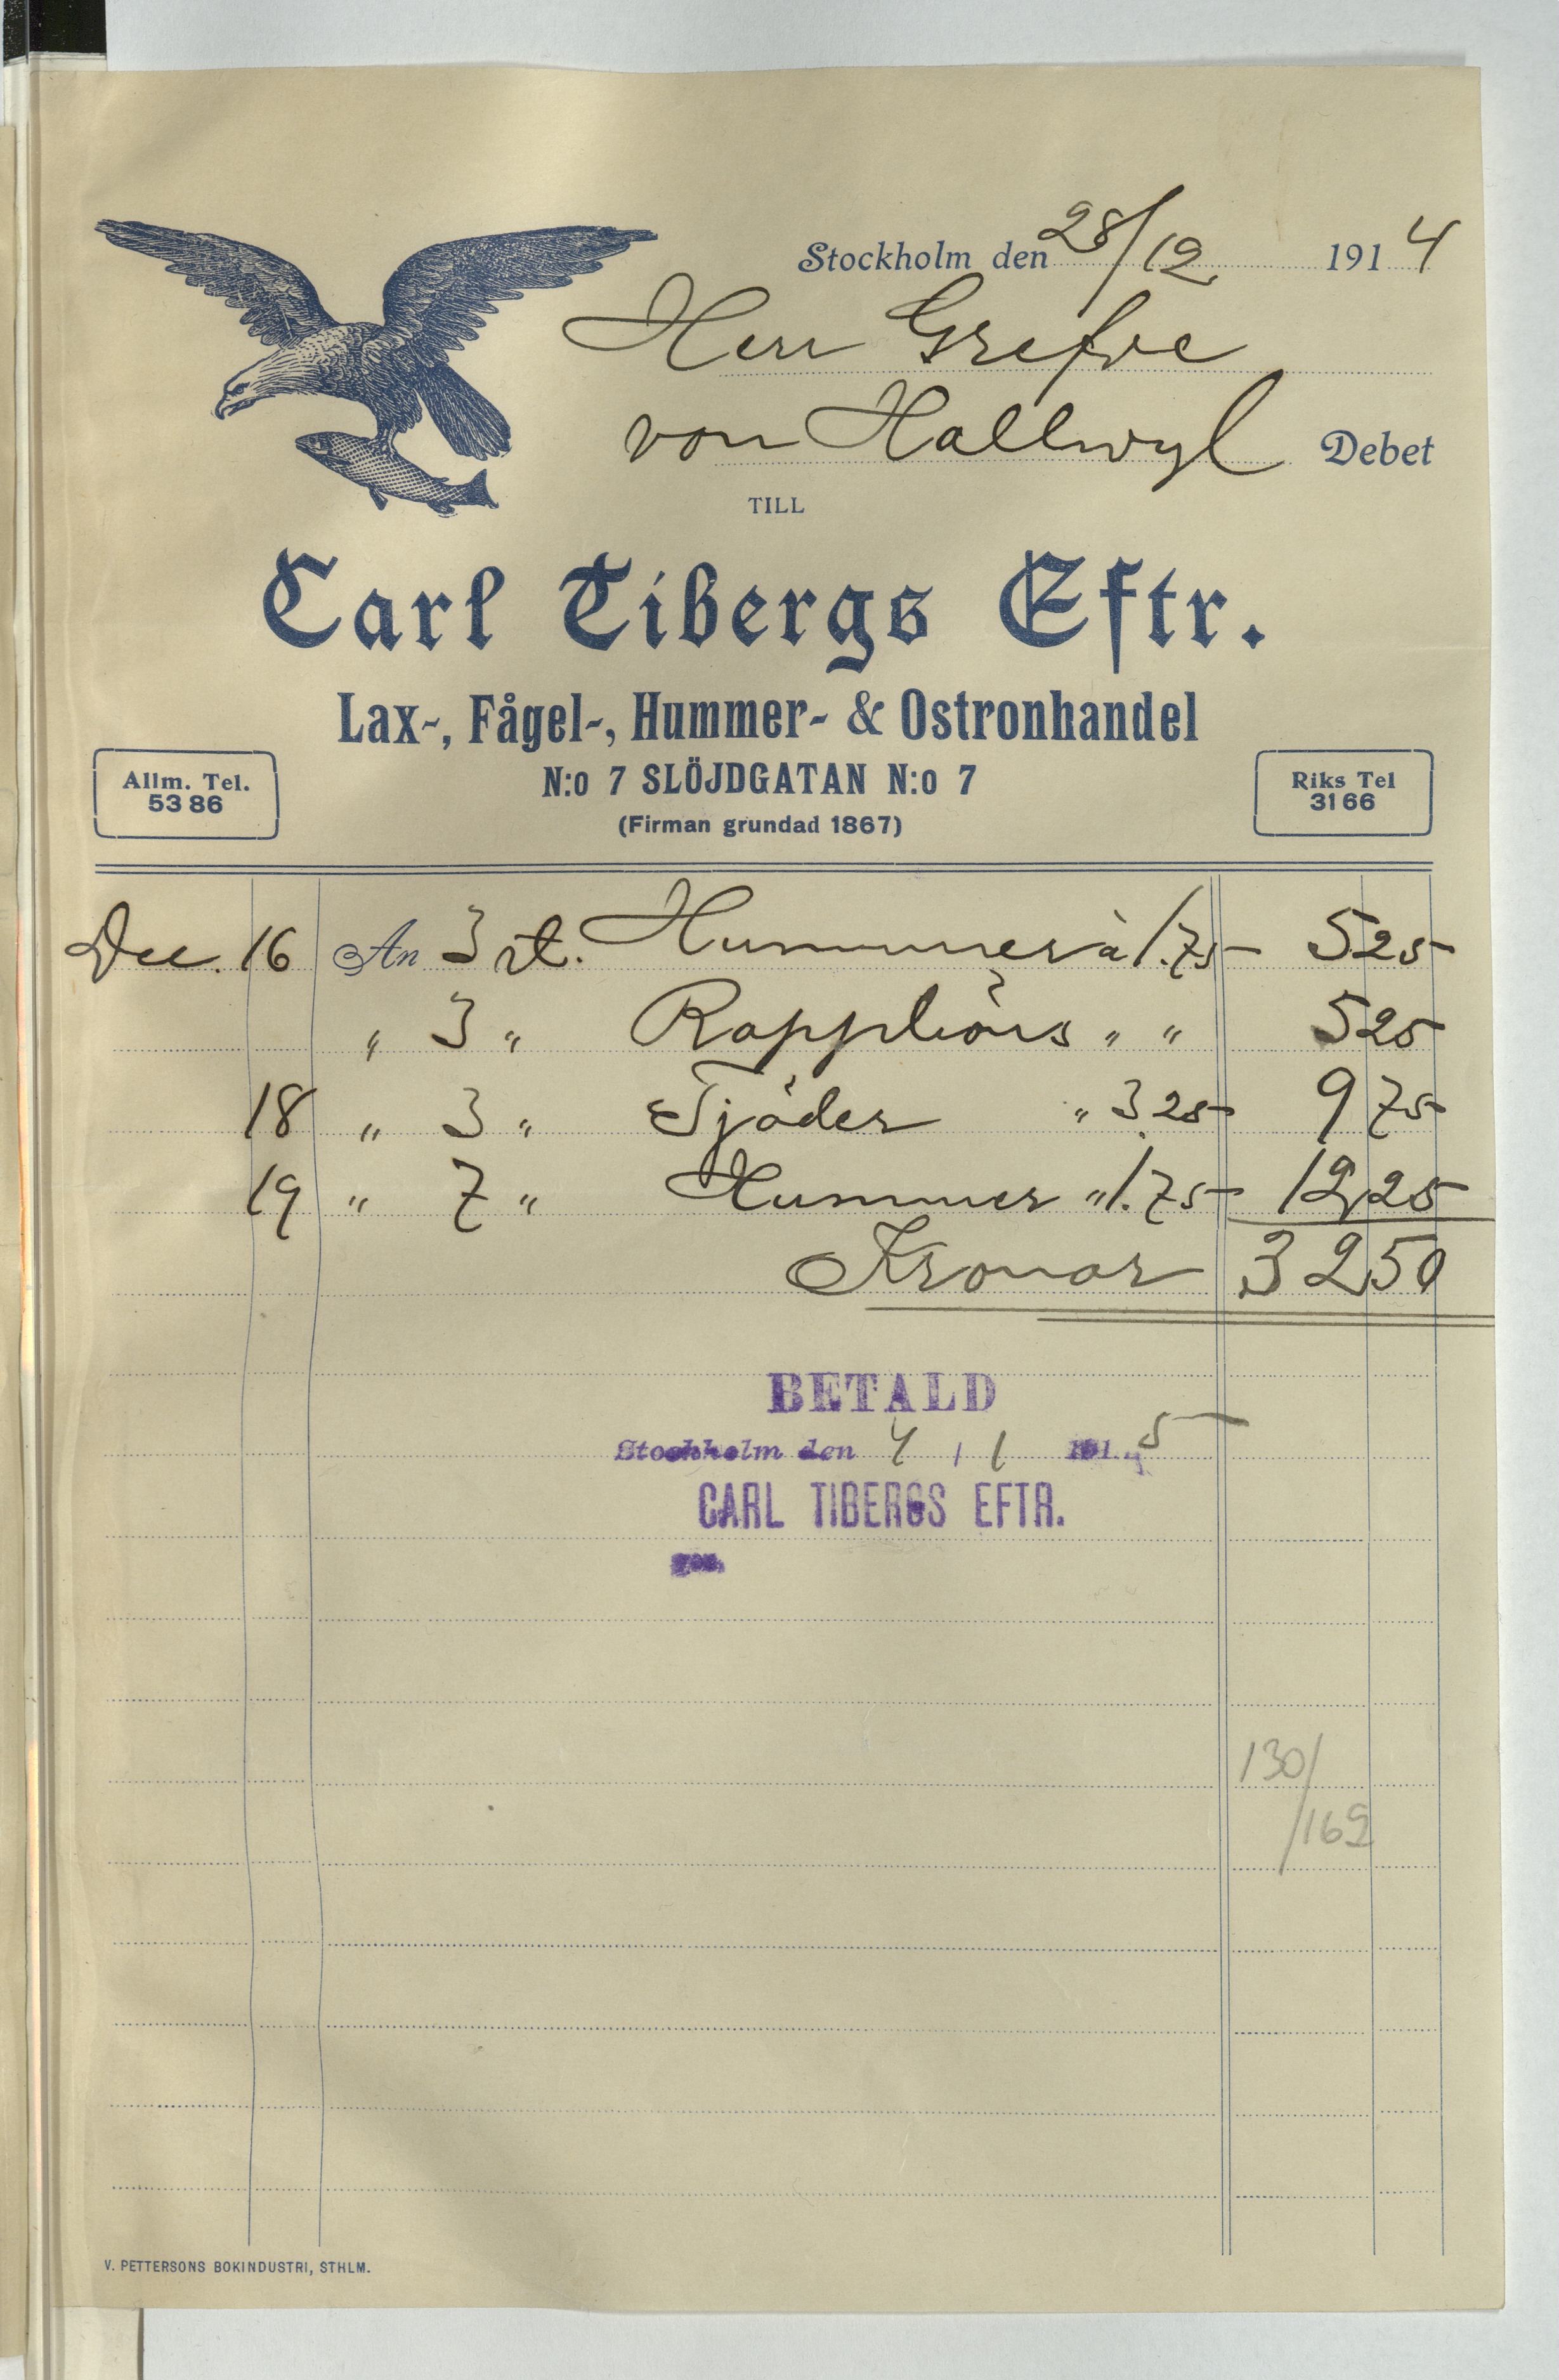 Stockholm den 28/12 1914
Herr Grefve
von Hallwyl Debet
TILL
Carl Tibergs Eftr.
Lax-, Fågel-, Hummer- & Ostronhandel
N:o 7 SLÖJDGATAN N:o 7
(Firman grundad 1867)
Allm. Tel.
53 86
Riks Tel
31 66
Dec. 16 An 3 st. Hummer à 1.75 5 25
" 3 " Rapphöns " " 5 25
18 " 3 " Tjäder " 3.25 9 75
19 " 7 " Hummer " 1.75 12 25
Kronor 32 50
BETALD
Stockholm den 4 / 1 1915
CARL TIBERGS EFTR.
130/
/169
V. PETTERSONS BOKINDUSTRI, STHLM.